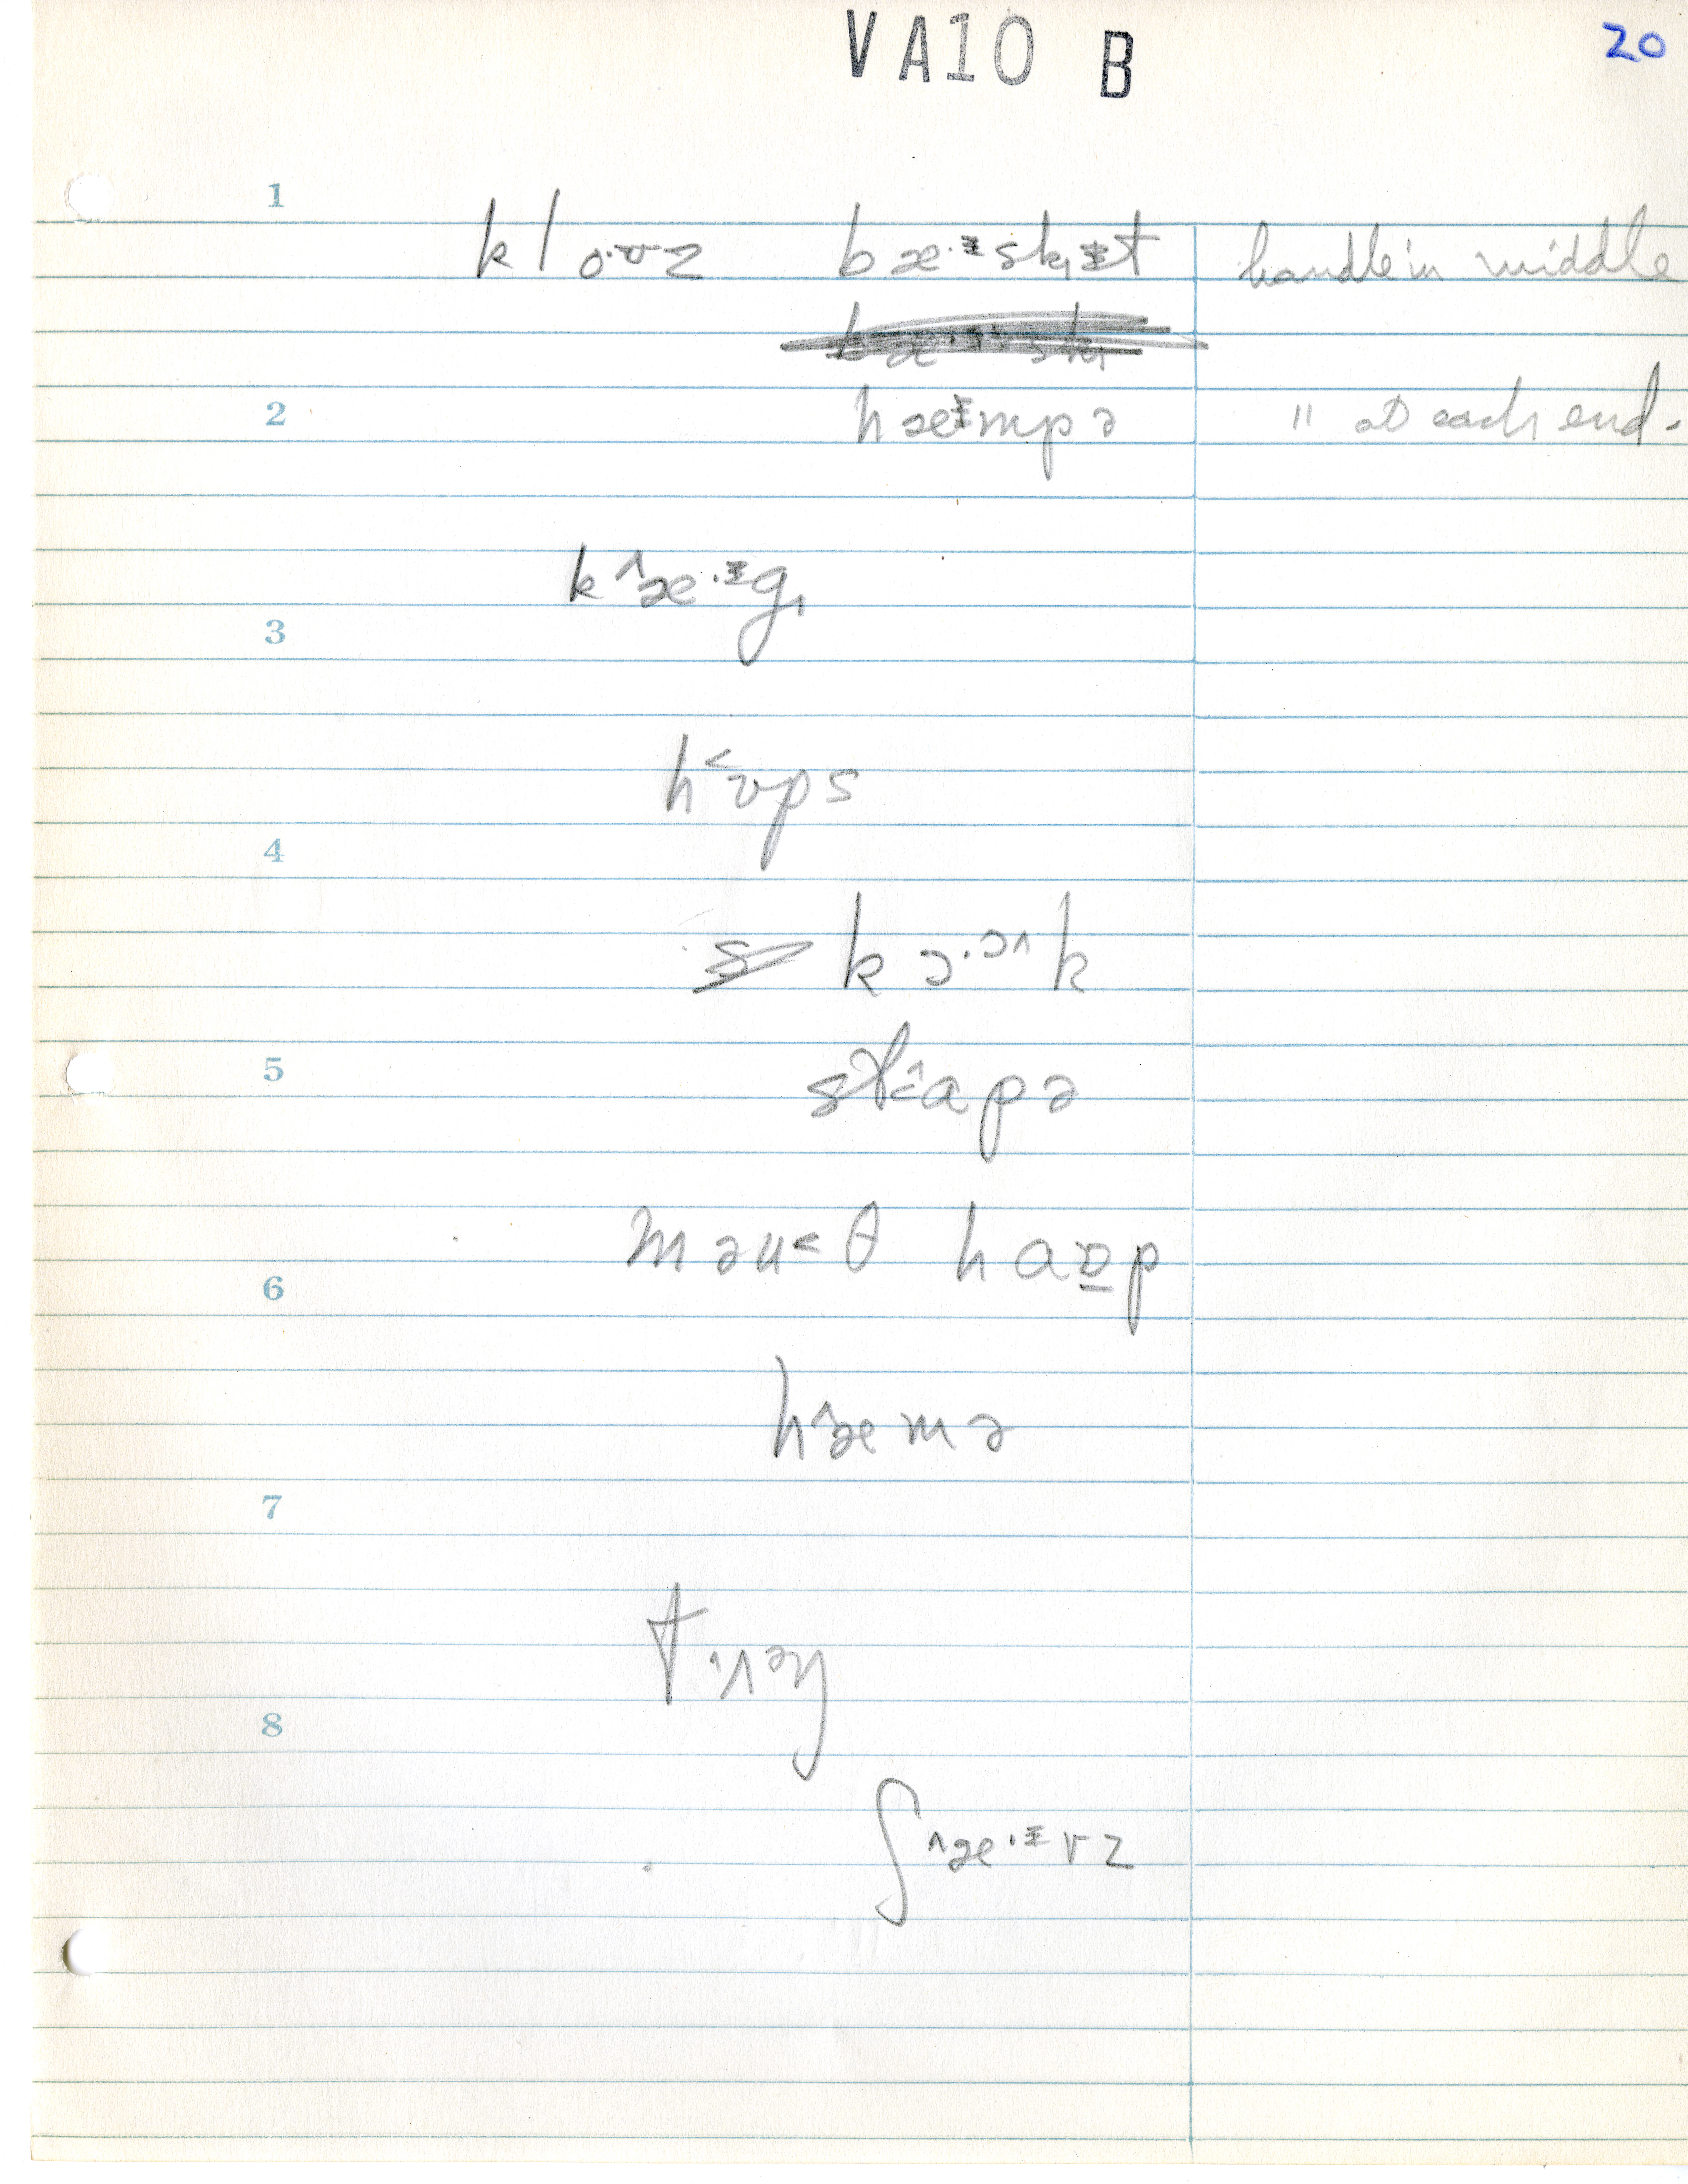 VA10 B
20
1
klo·ʊz bæ·ᵻsk̟ᵻt handle in middle
2
hæᵻmpə " at each end.
k^æ·ᵻg̟
3
h<ʊps
4
kɔ·ɔ^k
5
st<^apə
məu<θ haɒ̲p
6
h^æmə
7
8
ʃ^æ·ᵻvz